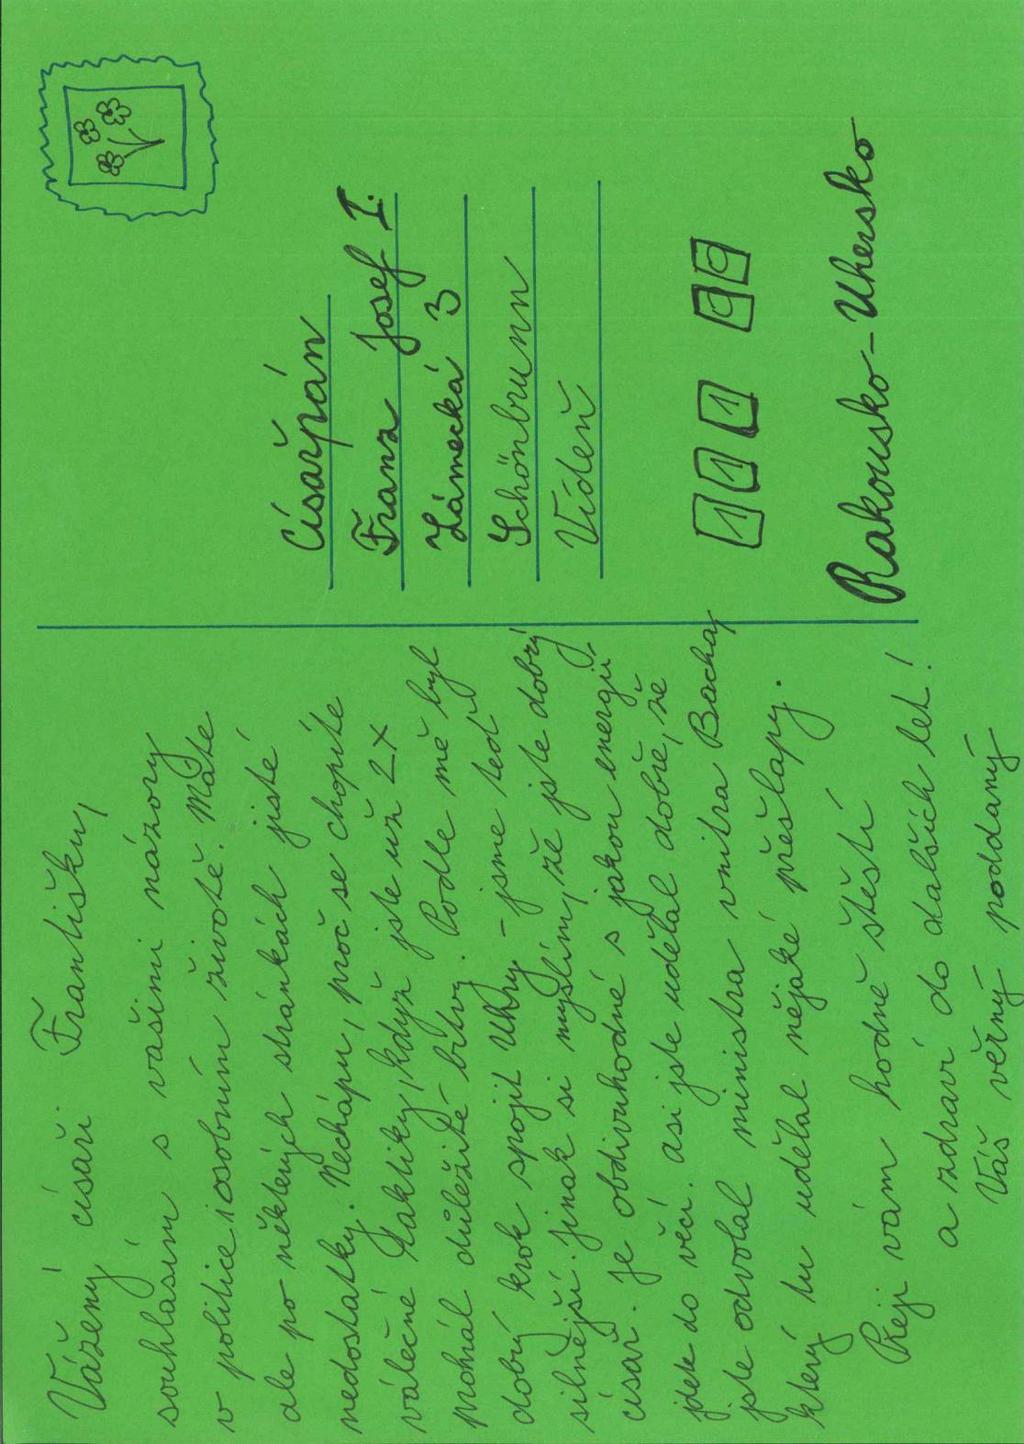 Vážený císaři Františku,
souhlasím s vašimi názory
v politice i osobním životě. Máte
ale po některých stránkách jisté
nedostatky. Nechápu, proč se chopíte
válečné taktiky, když jste už 2x
prohrál důležité bitvy. Podle mě byl
dobrý krok spojit Uhry - jsme teď
silnější. Jinak si myslím, že jste dobrý
císař. Je obdivuhodné s jakou energií
jdete do věcí. asi jste udělal dobře, že
jste odvolal ministra vnitra Bacha,
který tu udělal nějaké přešlapy.
Přeji vám hodně štěstí
a zdraví do dalších let!
Váš věrný poddaný
Císařpán
Franz Josef I.
Zámecká 3
Schönbrunn
Vídeň
111 99
Rakousko-Uhersko